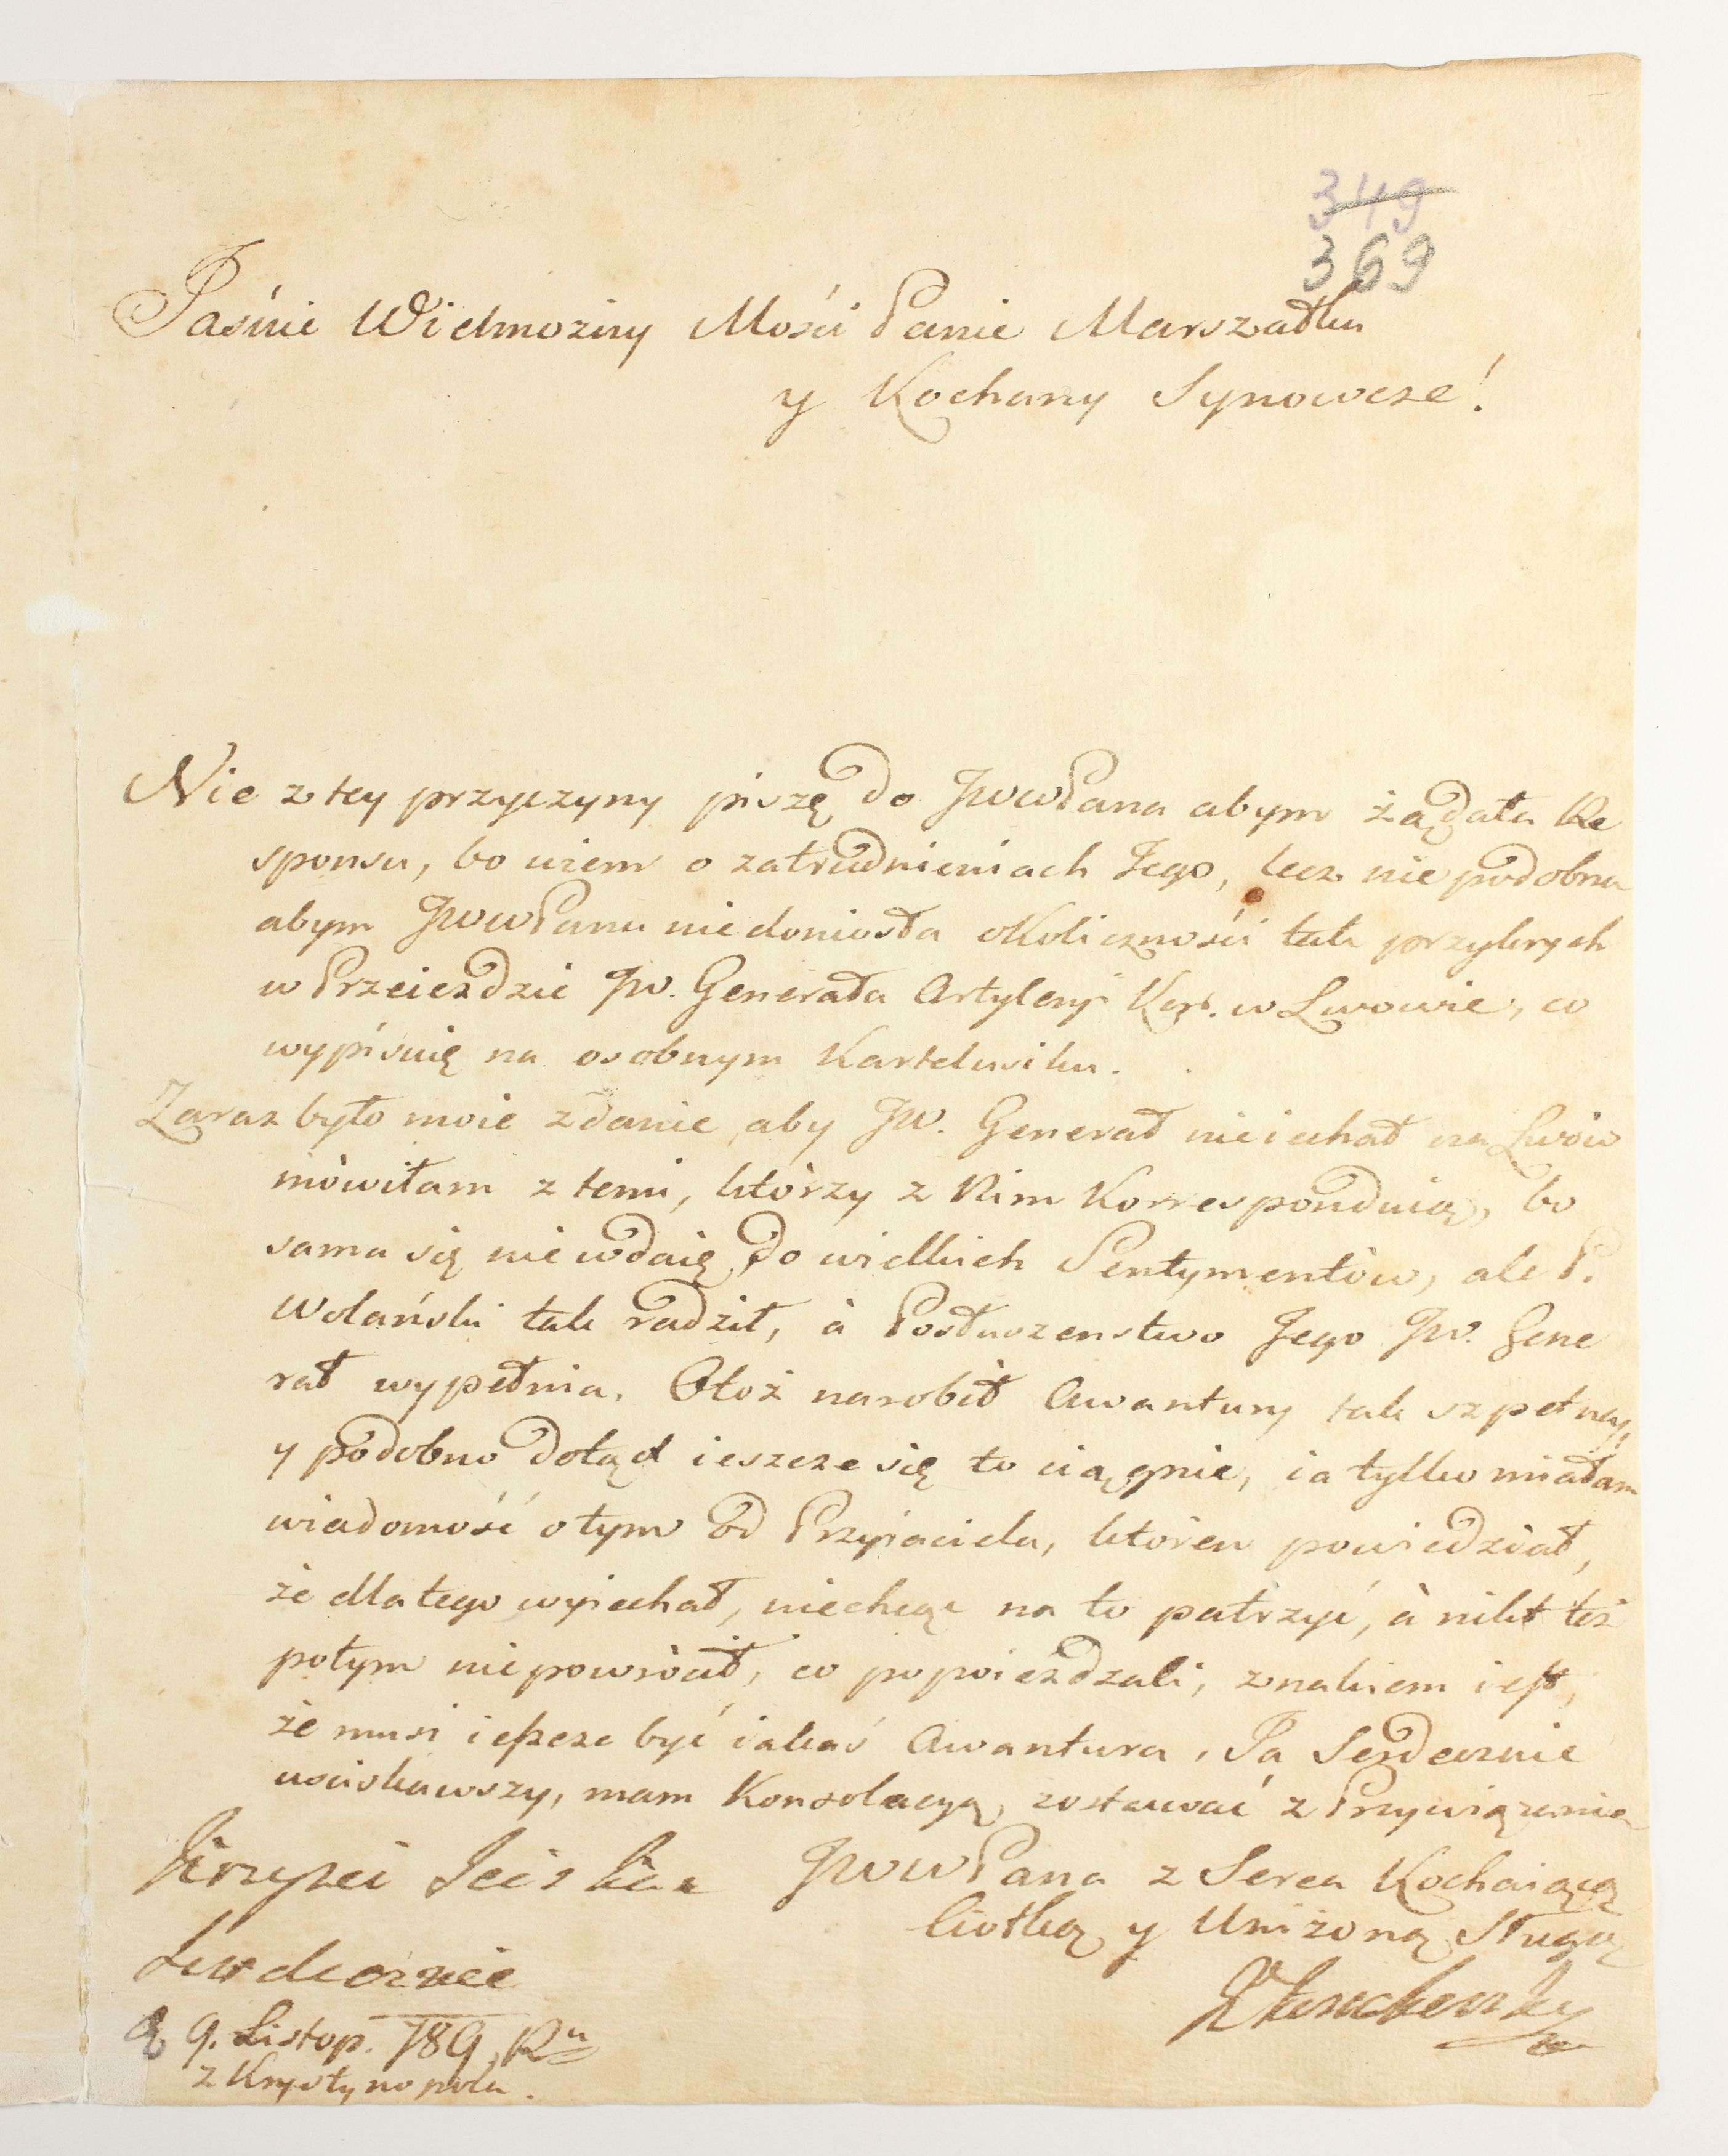 349
369
Jaśnie Wielmożny Mości Panie Marszałku
y Kochany Synowcze!
Nie z tey przyczyny piszę do JWWPana abym żądała Re
sponsu, bo wiem o zatrudnieniach Jego, lecz nie podobna
abym JWWPanu niedoniosła okoliczności tak przykrych
w Przeieździe JW. Generała Artyleryi Kor. w Lwowie, co
wypisuię na osobnym Karteluszku.
Zaraz było moie zdanie, aby JW. Generał nieiechał na Lwów
mówiłam z temi, którzy z Nim Korresponduią, bo
sama się nie wdaię do wielkich Sentymentów, ale P.
Wolański tak radził, à Posłuszenstwo Jego JW. Gene
rał wypełnia. Otoż narobił Awantury tak szpetney,
y podobno dotąd ieszcze się to ciągnie, ia tylko miałam
wiadomość o tym od Przyiaciela, któren powiedział,
że dla tego wyiechał, niechcąc na to patrzyć, à nikt też
potym niepowrócił, co popoieżdzali, znakiem iest,
że musi ieszcze być iakaś Awantura, Ja Serdecznie
uściskawszy, mam Konsolacyą, zostawać z Przywiązaniem
JWWPana z Serca Kochaiącą
Ciotką y Uniżoną Sługą
Serdecznie
d 9. Listop. 789 Ru
z Krystynopola.